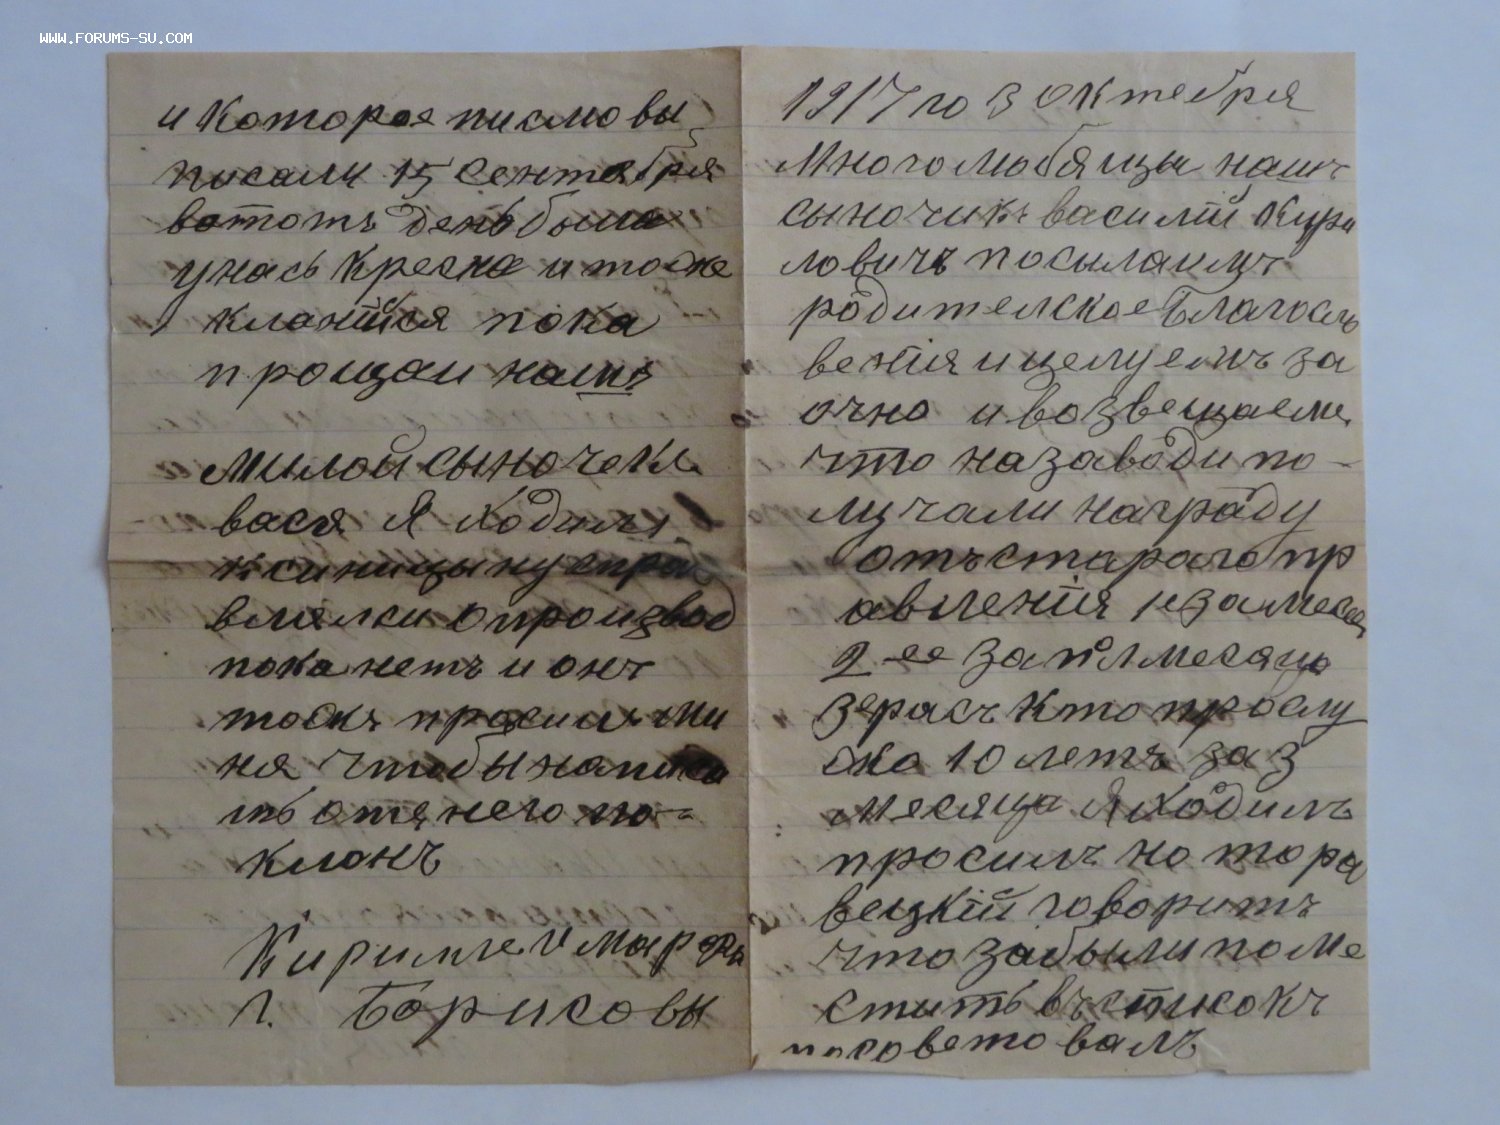 WWW.FORUMS-SU.COM
и которое писмо вы
писали 15 сентября
вототъ день была
унась Кресна и тоже
кланяйся пока
прощаи нашъ
милой сыночекъ
вася Я ходилъ
к синицыну спра
влялки о производ
пока нетъ и онъ
тоежъ просилъ ми
ня чтобы написа
ть отянего по-
клонъ
Кирилле и марфа
г. Борисовы
1917 го 3 октября
Многолюбящы нашъ
сыночикъ василий Кири
ловичъ посылаимъ
родителское Благосло
вения и целуемъ за
очно и возвещаемъ
что на заводи по-
лучали награду
отъ стараго пр
авления 1е за месец
2-ее за пол месяца
зерасъ кто прослу
жа 10 летъ за 3
месяца Я ходилъ
просилъ но тора
вецкий говоритъ
что забыли поме
стить въ списокъ
и посоветовалъ